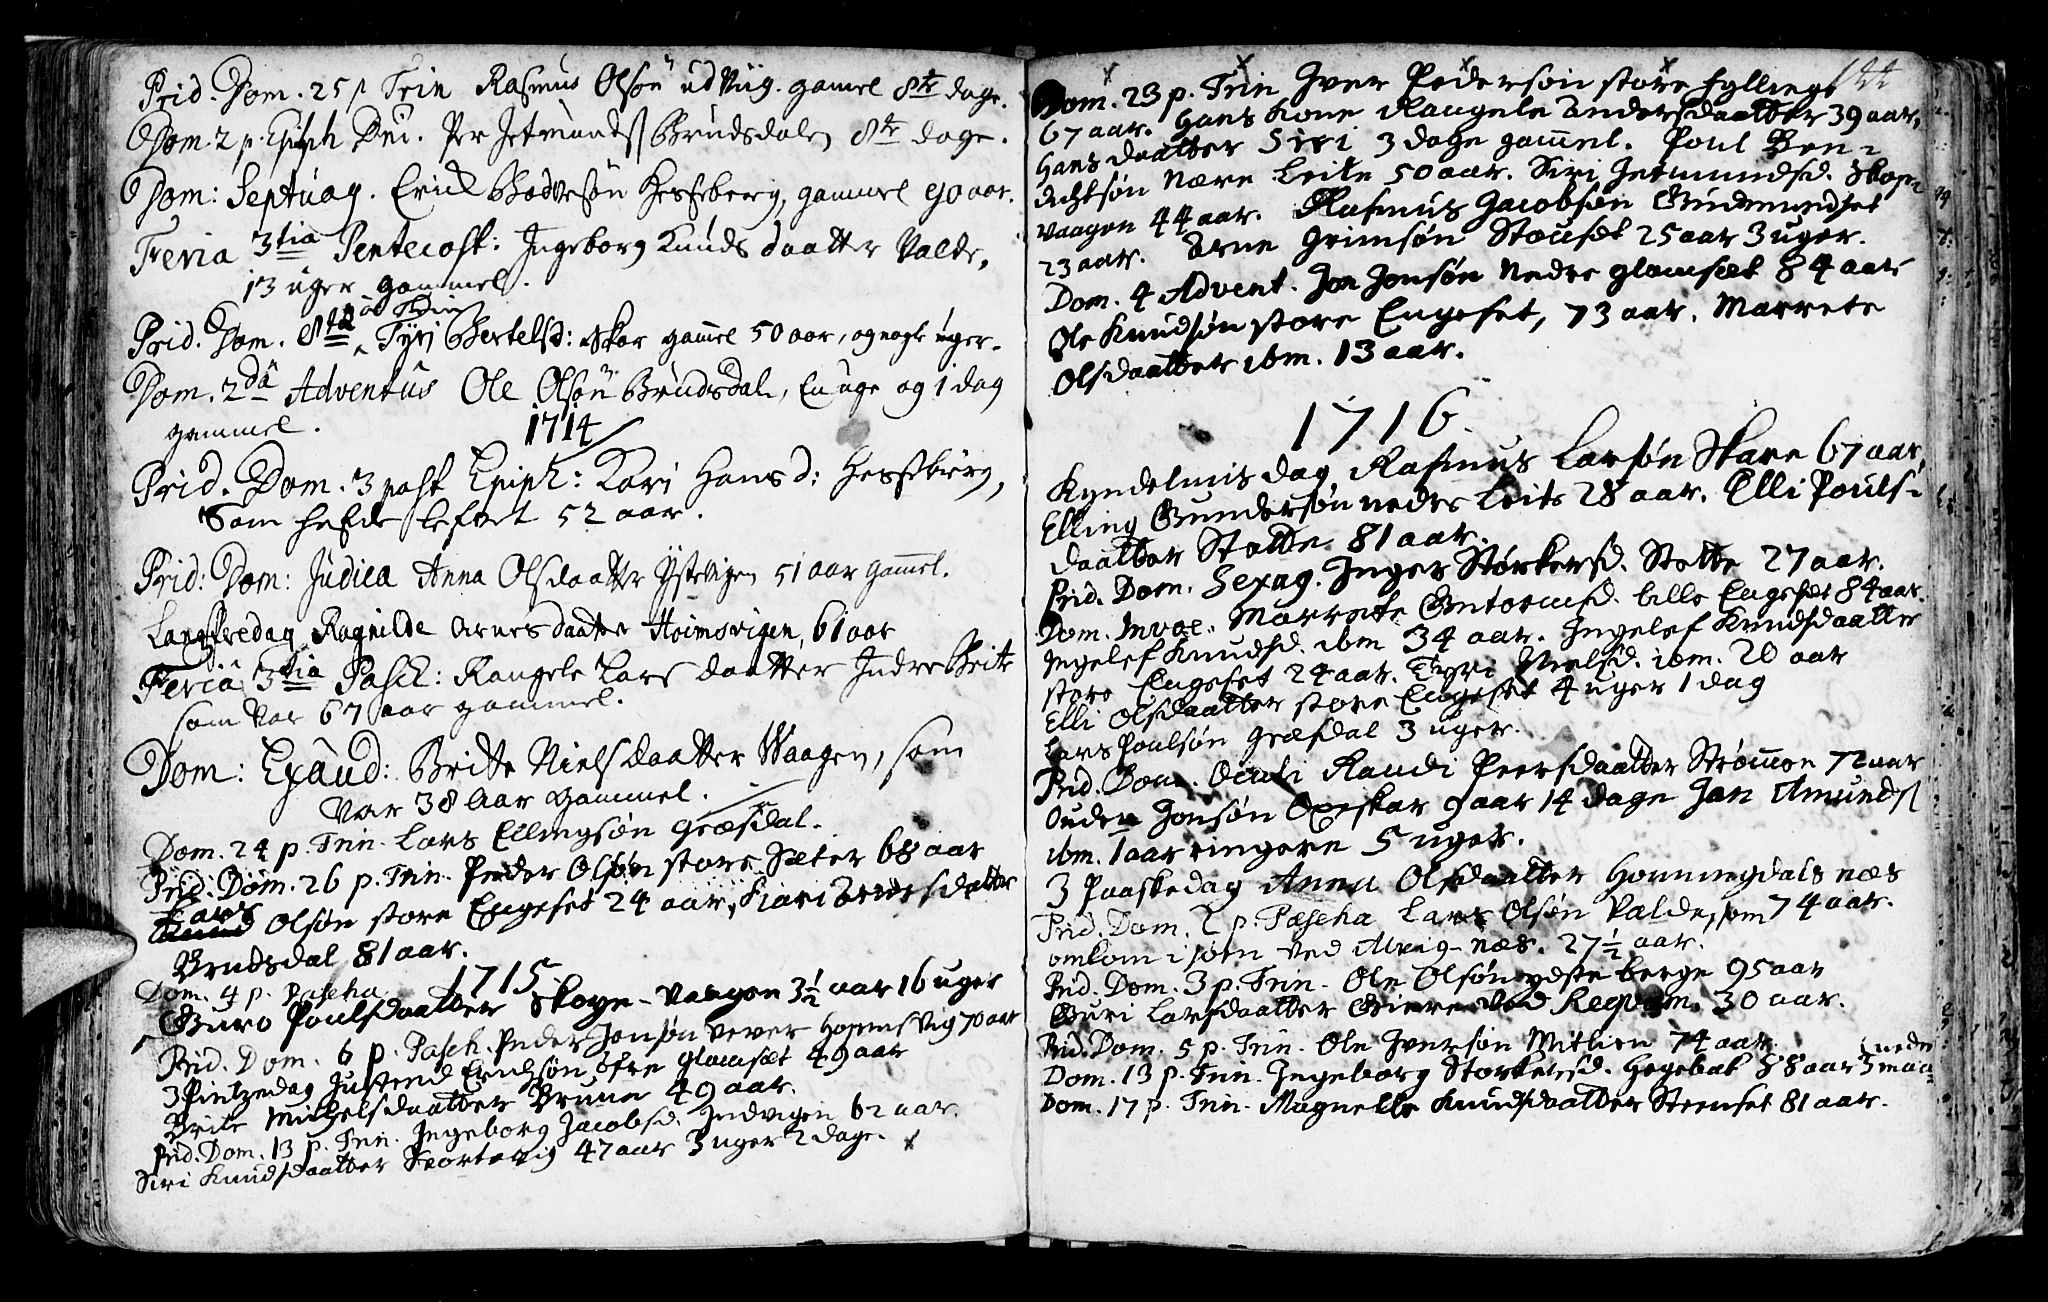 Prid. Dom. 25 p Trin Rasmus Olsøn udviig. gamel 8te dage.
Dom. 2 p. Epiph Dni. Per Jetmunds Brudsdalen 8te dage.
Dom: Septuag. Erick Baardsøn Hessberg, gammel 90 aar.
Feria 3tia Pentecost: Ingeborg Knuds daatter Valde,
13 uger gammel.
Prid. Dom. 8ta p Trin Tyri Bertelsd: Skar gamel 50 aar, og nogle uger.
Dom. 2da Adventus Ole Olsøn Brudsdal, En uge og 1 dag
gammel.
1714
Prid. Dom. 3 post Epiph: Kari Hansd: Hessberg,
Som hafde lefvet 52 aar.
Prid: Dom: Judica Anna Olsdaatter Ystevigen 51 aar gamel.
Langfredag Ragnilde Arnes daatter Hoimsvigen, 61 aar
Feria 3tia Pasch: Rangele Lars daatter Indre Breite
som var 67 aar gammel.
Dom: Exaud: Britte Nielsdaatter Waagen, som
var 38 Aar gammel.
Dom. 24 p. Trin. Lars Ellingsøn Græsdal.
Prid. Dom. 26 p. Trin. Peder Olsøn store Sæter 68 aar
Lars
Knud Olsøn store Engeset 24 aar, Kari Endresdatter
Brudsdal 81 aar.
1715
Dom. 4 p. Pascha
Guro Poulsdaatter Skoge-Vaagen 3½ aar 16 uger
Prid. Dom. 6 p. Pasch. Peder Jonsøn Vever Hoimsvig 70 aar
3 Pintzedag Justend Erichsøn Øfre Glamsæt 49 aar
Brite Michelsdaatter Bruun 49 aar.
Prid. Dom. 13 p. Trin. Ingeborg Jacobsd. Indvigen 62 aar.
Siri Knudsdaatter Sortevig 47 aar 3 uger 2 dage.
122
Dom. 23 p. Trin Iver Pedersøn store Fyllings
67 aar. Hans Kone Rangele Andersdaatter 39 aar,
Hans daatter Siri 3 dage gamel. Poul Ben-
dichtsøn Nære Leite 50 aar. Siri Jetmundsd. Skoge-
vaagen 44 aar. Rasmus Jacobsøn Gudmundset
23 aar. Arne Grimsøn Stouset 25 aar 3 uger.
Dom. 4 Advent. Jon Jonsøn Nedre Glamsæt 84 aar
Ole Knudsøn store Engeset, 73 aar. Marrete
Olsdaatter ibm. 13 aar.
1716
Kyndelmis dag, Rasmus Larsøn Skare 67 aar,
Elling Gundersøn nedre Leite 28 aar. Elli Pouls-
daatter Stette 81 aar.
Prid. Dom. Sexag. Inger Størkersd. Stette 27 aar.
Dom. Invoc. Marrete Gutormsd. lille Engeset 84 aar.
Ingelef Knudsd. ibm 34 aar. Ingelef Knudsdaatter
store Engeset 24 aar. Tyri Nielsd. ibm. 20 aar
Elli Olsdaatter store Engeset 4 uger 1 dag
Lars Poulsøn Græsdal 3 uger.
Prid. Dom. Oculi Randi Peersdaatter Strømmen 72 aar
Ouden Jonsøn Oxeskar 9 aar 14 dage Jan Amunds
ibm. 1 aar ringere 5 uger.
3 Paaskedag Anna Olsdaatter Honningdals næs
74 aar.
Prid. Dom. 2 p. Pascha Lars Olsøn Valde, som
omkom i søen ved Alvig-næs. 27½ aar.
Prid. Dom. 3 p. Trin. Ole Olsøn ydste berge 95 aar
Guri Larsdaatter Giere ved Reepdm. 30 aar.
Prid. Dom. 5 p. Trin. Ole Iversøn Mithien 74 aar.
Dom. 13 p. Trin. Ingeborg Storkersd. Hegebak 88 aar 3 maa-
neder
Dom. 17 p. Trin. Magnelle Knudsdaatter Steenset 81 aar.